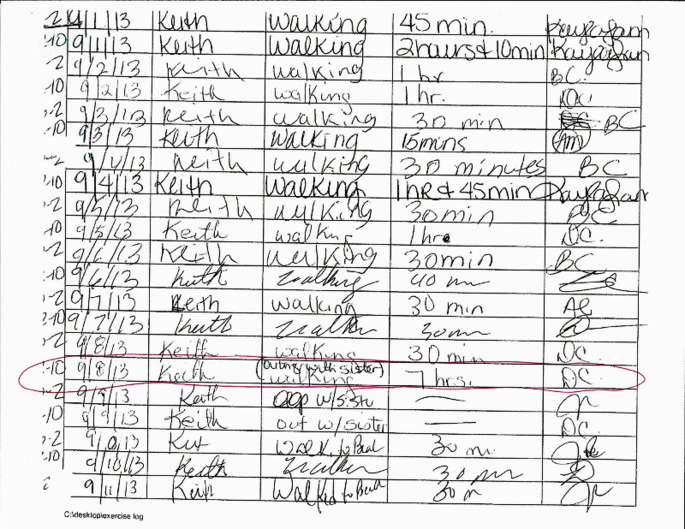 -2 9/1/13 Keith Walking 45 min. Kayafam
:10 9/1/13 Keith Walking 2hours & 10min Kayafam
-2 9/2/13 Keith walking 1 hr BC.
:10 9/2/13 Keith walking 1 hr. DC.
:-2 9/3/13 Keith walking 30 min BC
-10 9/3/13 Keith Walking 15mins Am
-2 9/4/13 Keith walking 30 minutes BC
:10 9/4/13 Keith Walking 1hr & 45min
-2 9/5/13 Keith walking 30min BC
:10 9/5/13 Keith walking 1 hr. DC.
-2 9/6/13 Keith walking 30min BC
:10 9/6/13 Keith walking 40
-2 9/7/13 Keith walking 30 min
:10 9/7/13 Keith 30
-2 9/8/13 Keith walking 30 min DC
:10 9/8/13 Keith (outing with sister) walking 7 hrs. DC.
-2 9/9/13 Keith w/sister
:10 9/9/13 Keith out w/sister DC.
-2 9/10/13 Walk to 30
:10 9/10/13 Keith 30
9/11/13 Keith Walked to 30
C:\desktop\exercise log